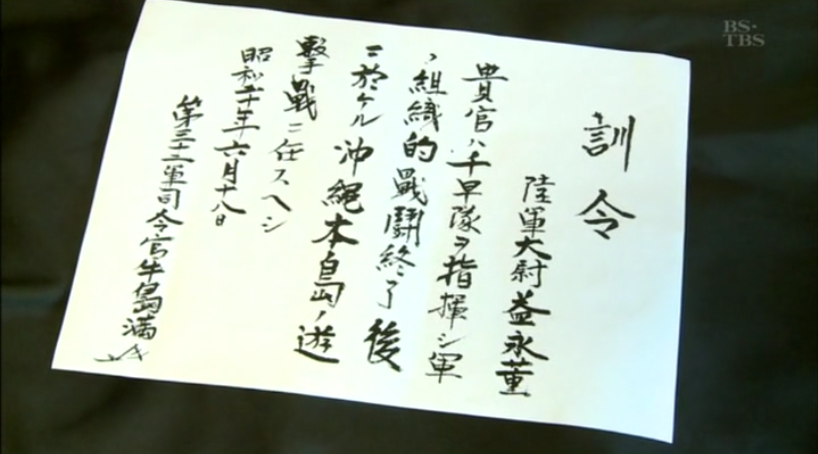 訓令
陸軍大尉益永董
貴官ハ千早隊ヲ指揮シ軍
ノ組織的戰闘終了後
ニ於ケル沖縄本島ノ遊
擊戰ニ任スヘシ
昭和二十年六月十八日
第三十二軍司令官牛島満
BS-TBS